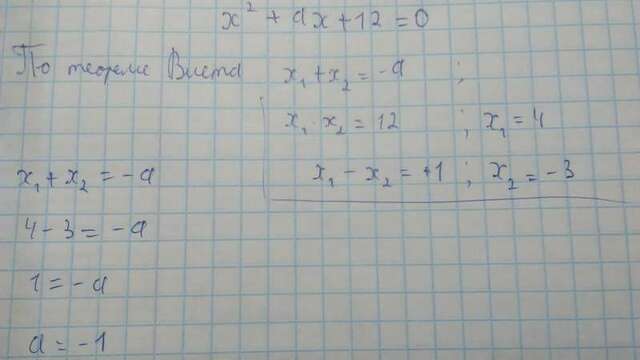 x² + ax + 12 = 0
По теореме Виета x₁ + x₂ = -a ;
x₁ · x₂ = 12 ; x₁ = 4
x₁ - x₂ = +1 ; x₂ = -3
x₁ + x₂ = -a
4 - 3 = -a
1 = -a
a = -1